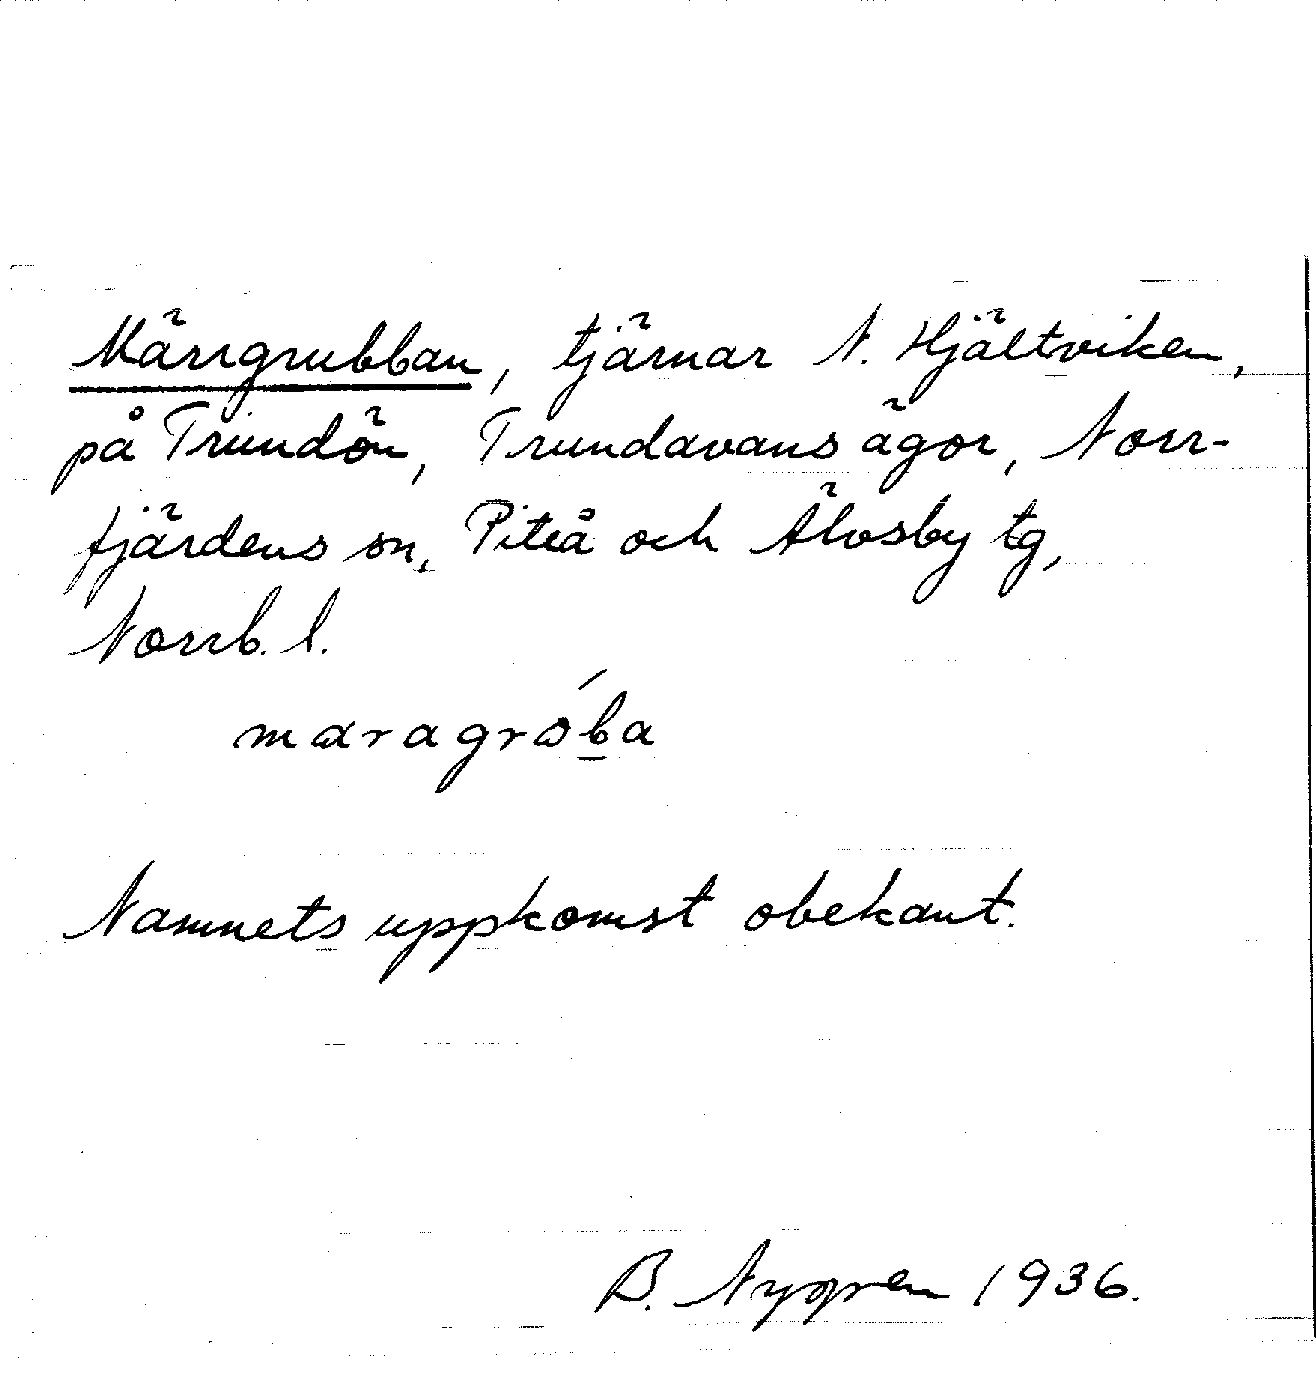 Märrgrubban, tjärnar N. Hjältviken,
på Trundön, Trundavans ägor, Norr-
fjärdens sn, Piteå och Älvsby tg,
Norrb. l.
maragróba
Namnets uppkomst obekant.
B. Nygren 1936.